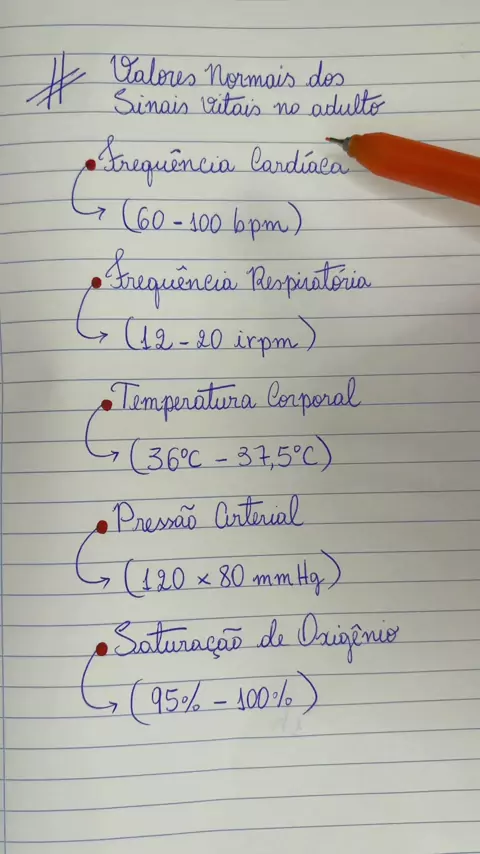 # Valores Normais dos
Sinais Vitais no adulto
Frequência Cardíaca
(60 - 100 bpm)
Frequência Respiratória
(12 - 20 irpm)
Temperatura Corporal
(36°C - 37,5°C)
Pressão Arterial
(120 x 80 mmHg)
Saturação de Oxigênio
(95% - 100%)